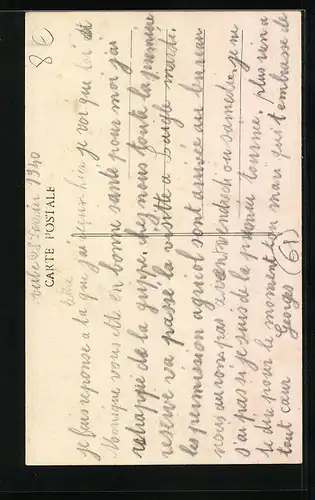 8 €
le 28 Février 1940
CARTE POSTALE
je fais reponse a ta lettre que j'ai reçu hier je voi que toi et
Monique vous ete en bonne santé pour moi j'ai
rechappé de la grippe. chez nous toute la premiere
reserve va passé la visitte a Laigle mardi.
les permission agricol sont arrivée au bureau
nous aurons pas avant vendredi ou samedi. je ne
s'ai pas si je suis de la premier tournée. plus rien a
te dire pour le moment ton mari qui t'embrasse de
tout cœur Georges (61)